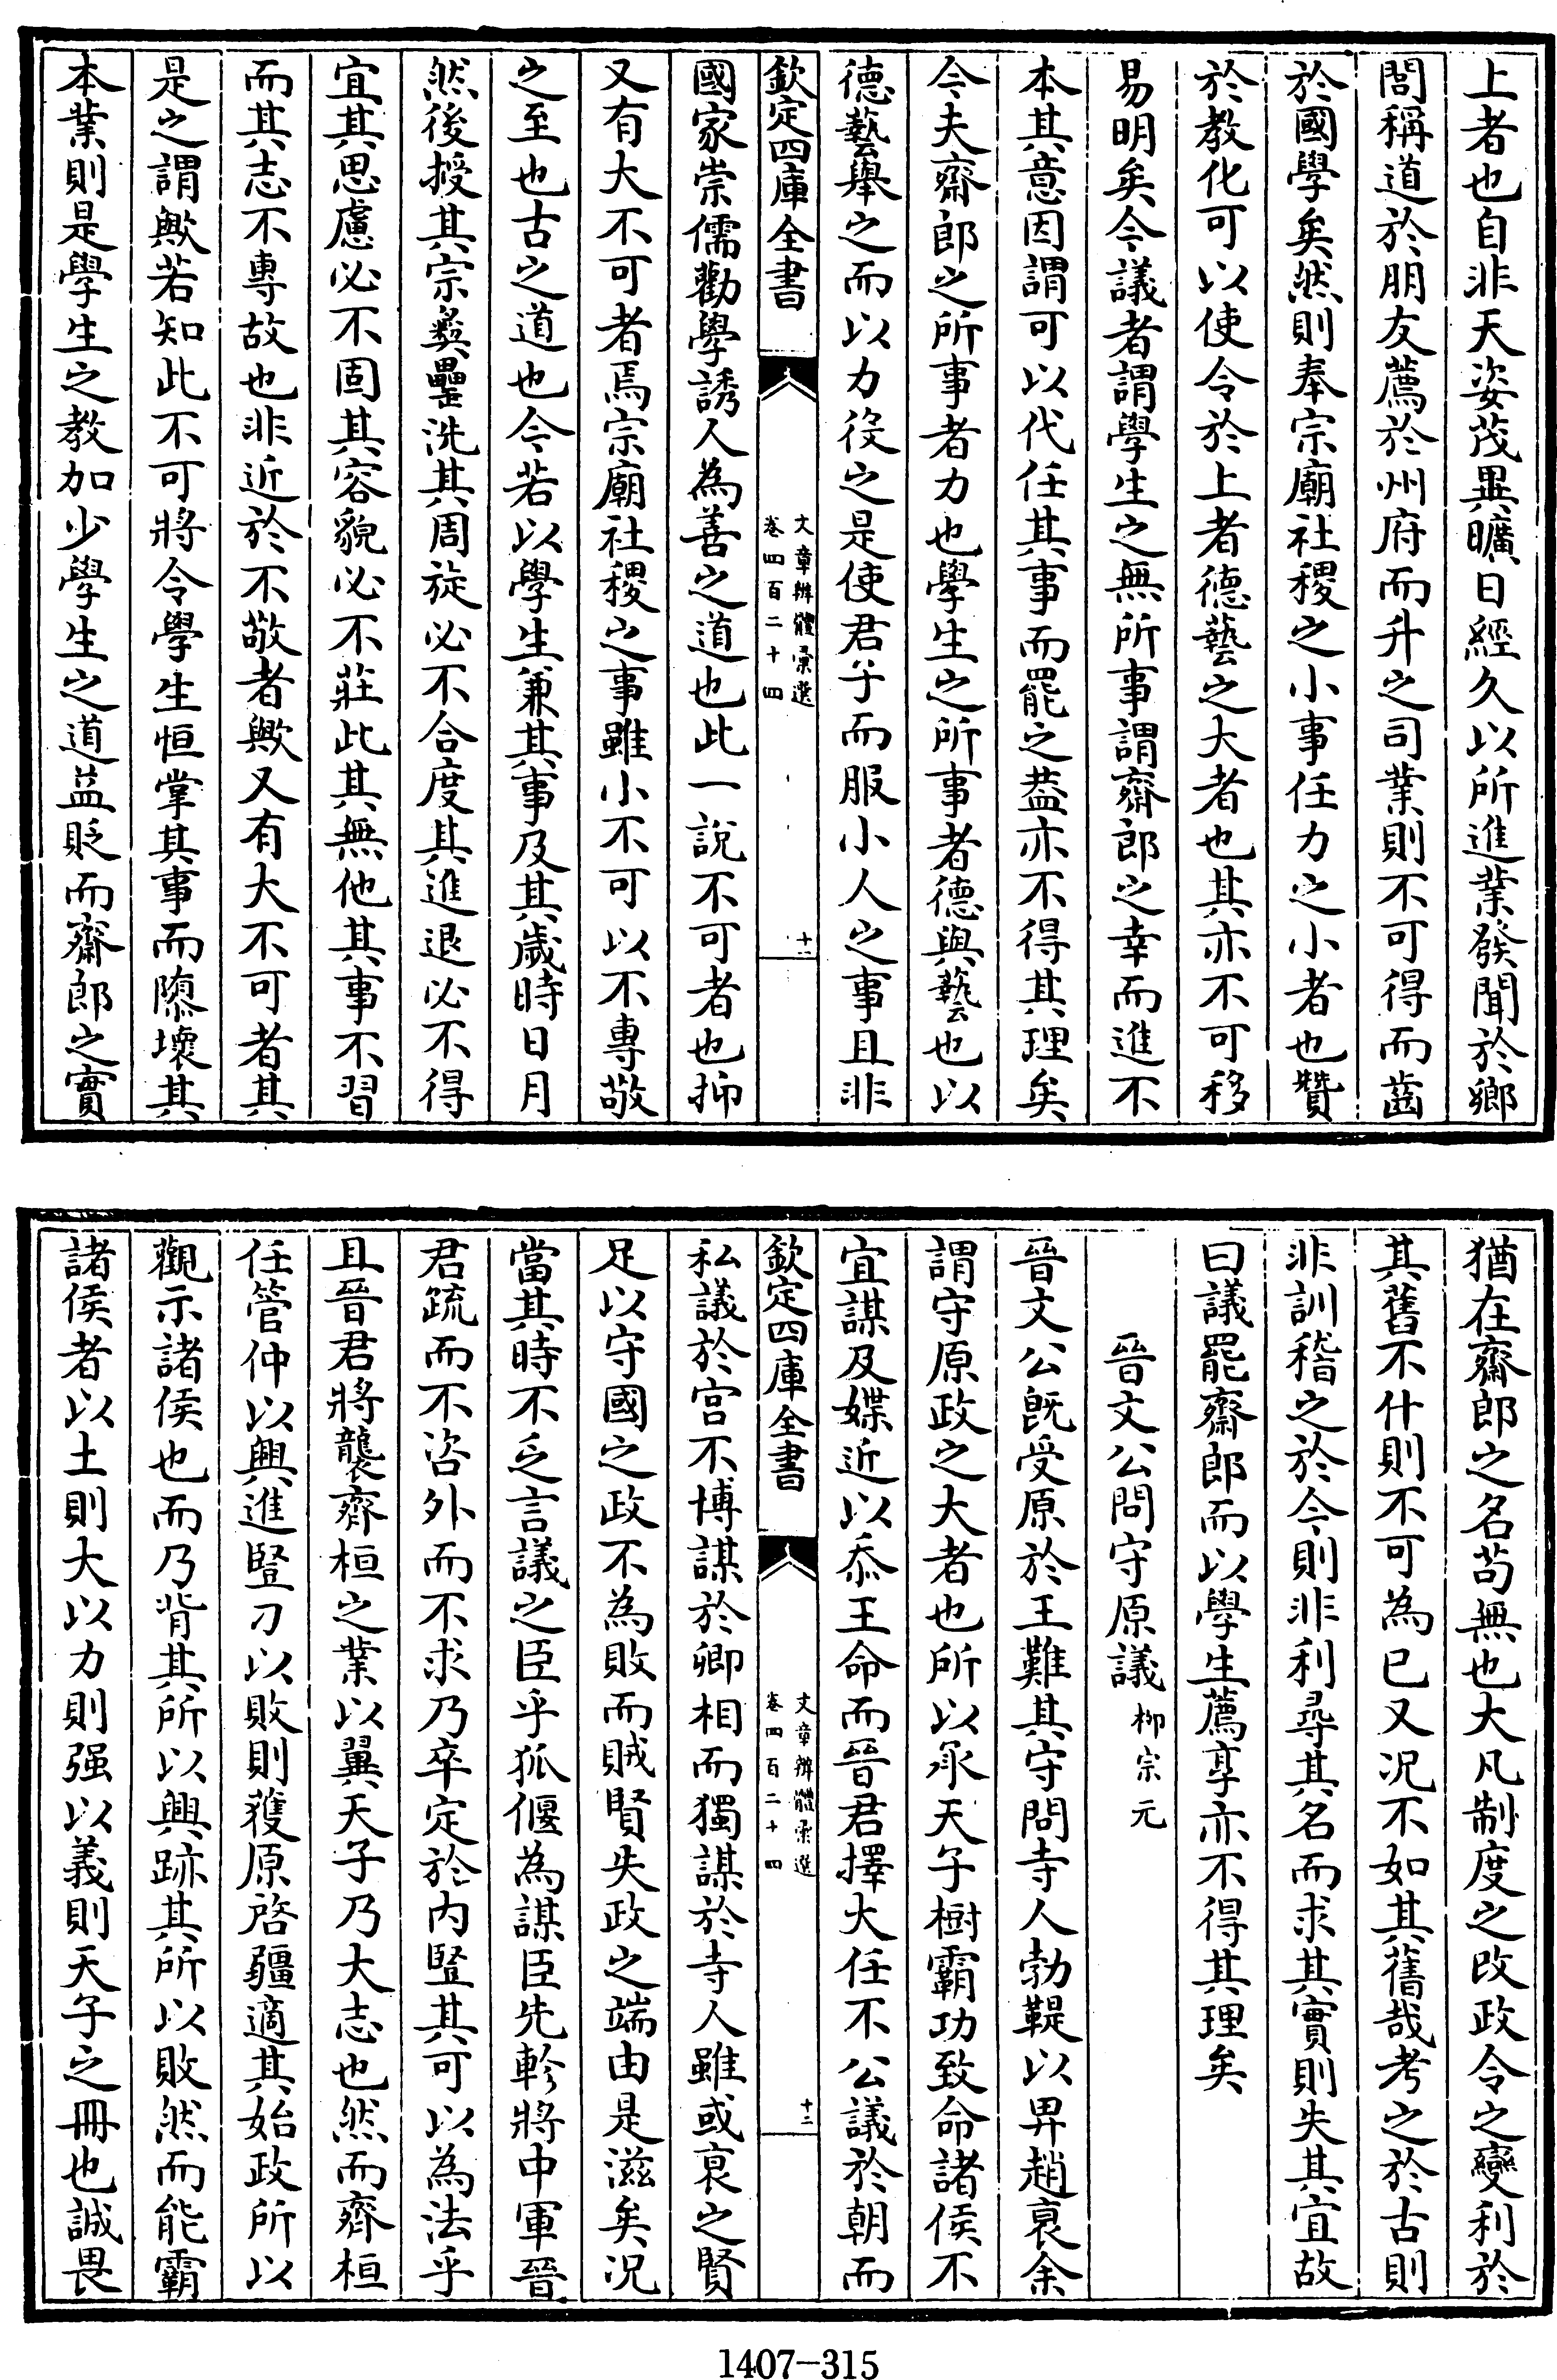 上者也自非天姿茂異曠日經久以所進業發聞於鄉
閭稱道於朋友薦於州府而升之司業則不可得而齒
於國學矣然則奉宗廟社稷之小事任力之小者也贊
於教化可以使令於上者德藝之大者也其亦不可移
易明矣今議者謂學生之無所事謂齋郎之幸而進不
本其意因謂可以代任其事而罷之葢亦不得其理矣
今夫齋郎之所事者力也學生之所事者德與藝也以
德藝舉之而以力役之是使君子而服小人之事且非
欽定四庫全書
文章辨體彙選
卷四百二十四
十一
國家崇儒勸學誘人為善之道也此一說不可者也抑
又有大不可者焉宗廟社稷之事雖小不可以不專敬
之至也古之道也今若以學生兼其事及其歲時日月
然後授其宗彝罍洗其周旋必不合度其進退必不得
宜其思慮必不固其容貌必不莊此其無他其事不習
而其志不專故也非近於不敬者歟又有大不可者其
是之謂歟若知此不可將令學生恒掌其事而隳壞其
本業則是學生之教加少學生之道益貶而齋郎之實
猶在齋郎之名苟無也大凡制度之改政令之變利於
其舊不什則不可為已又况不如其舊哉考之於古則
非訓稽之於今則非利尋其名而求其實則失其宜故
曰議罷齋郎而以學生薦享亦不得其理矣
晉文公問守原議 柳宗元
晉文公既受原於王難其守問寺人勃鞮以畀趙衰余
謂守原政之大者也所以承天子樹霸功致命諸侯不
宜謀及媟近以忝王命而晉君擇大任不公議於朝而
欽定四庫全書
文章辨體彙選
卷四百二十四
十二
私議於宫不博謀於卿相而獨謀於寺人雖或衰之賢
足以守國之政不為敗而賊賢失政之端由是滋矣况
當其時不乏言議之臣乎狐偃為謀臣先軫將中軍晉
君疏而不咨外而不求乃卒定於内豎其可以為法乎
且晉君將襲齊桓之業以翼天子乃大志也然而齊桓
任管仲以興進豎刁以敗則獲原啓疆適其始政所以
觀示諸侯也而乃背其所以興跡其所以敗然而能霸
諸侯者以土則大以力則强以義則天子之冊也誠畏
1407-315